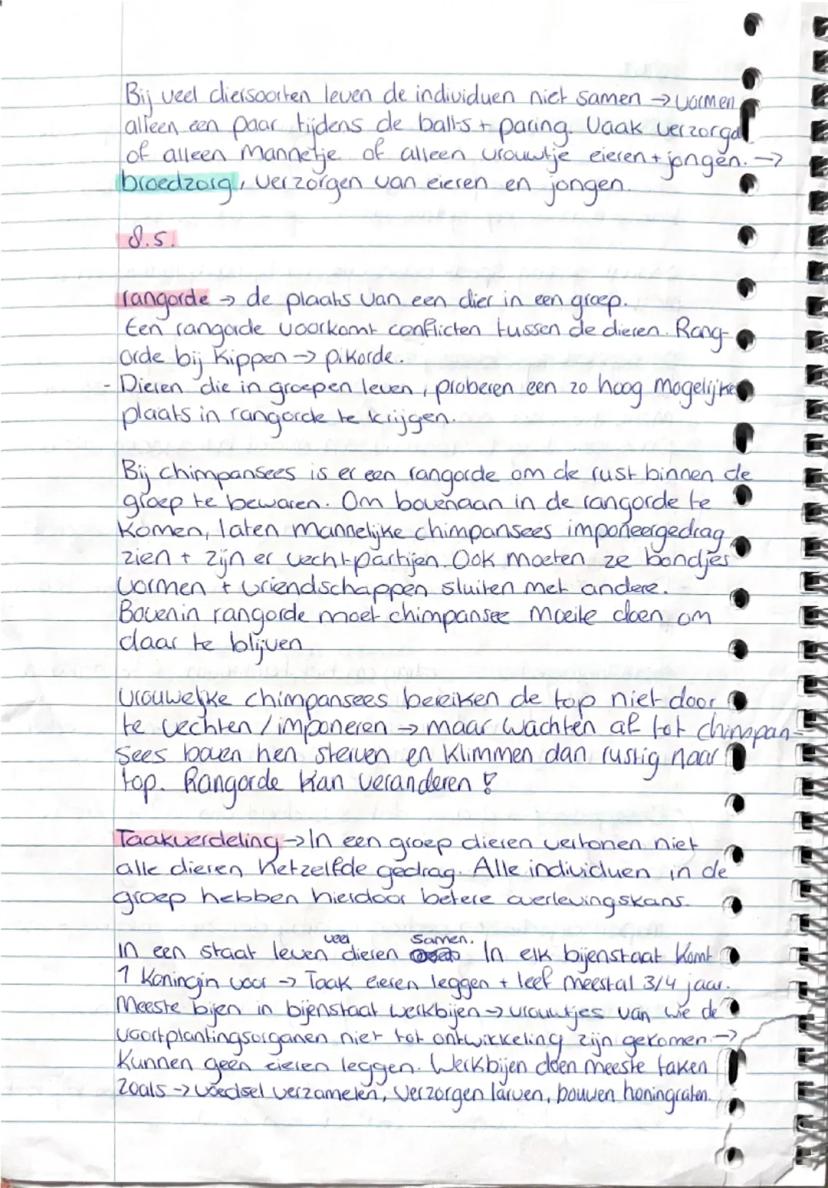 Bij veel diersoorten leven de individuen niet samen → vormen
alleen een paar tijdens de balts + paring. Vaak verzorgd
of alleen mannetje of alleen vrouwtje eieren + jongen. →
broedzorg, verzorgen van eieren en jongen.
8.5.
rangorde → de plaats van een dier in een groep.
Een rangorde voorkomt conflicten tussen de dieren. Rang-
orde bij kippen → pikorde.
- Dieren die in groepen leven, proberen een zo hoog mogelijke
plaats in rangorde te krijgen.
Bij chimpansees is er een rangorde om de rust binnen de
groep te bewaren. Om bovenaan in de rangorde te
komen, laten mannelijke chimpansees imponeergedrag
zien + zijn er vechtpartijen. Ook moeten ze bondjes
vormen + vriendschappen sluiten met andere.
Bovenin rangorde moet chimpansee moeite doen om
daar te blijven
Vrouwelijke chimpansees bereiken de top niet door
te vechten / imponeren → maar wachten af tot chimpan-
sees boven hen sterven en klimmen dan rustig naar
top. Rangorde kan veranderen !
Taakverdeling → In een groep dieren vertonen niet
alle dieren hetzelfde gedrag. Alle individuen in de
groep hebben hierdoor betere overlevingskans.
In een staat leven veel dieren samen. In elk bijenstaat komt
1 koningin voor → Taak eieren leggen + leef meestal 3/4 jaar.
Meeste bijen in bijenstaat werkbijen → vrouwtjes van wie de
voortplantingsorganen niet tot ontwikkeling zijn gekomen →
kunnen geen eieren leggen. Werkbijen doen meeste taken
zoals → voedsel verzamelen, verzorgen larven, bouwen honingraten.